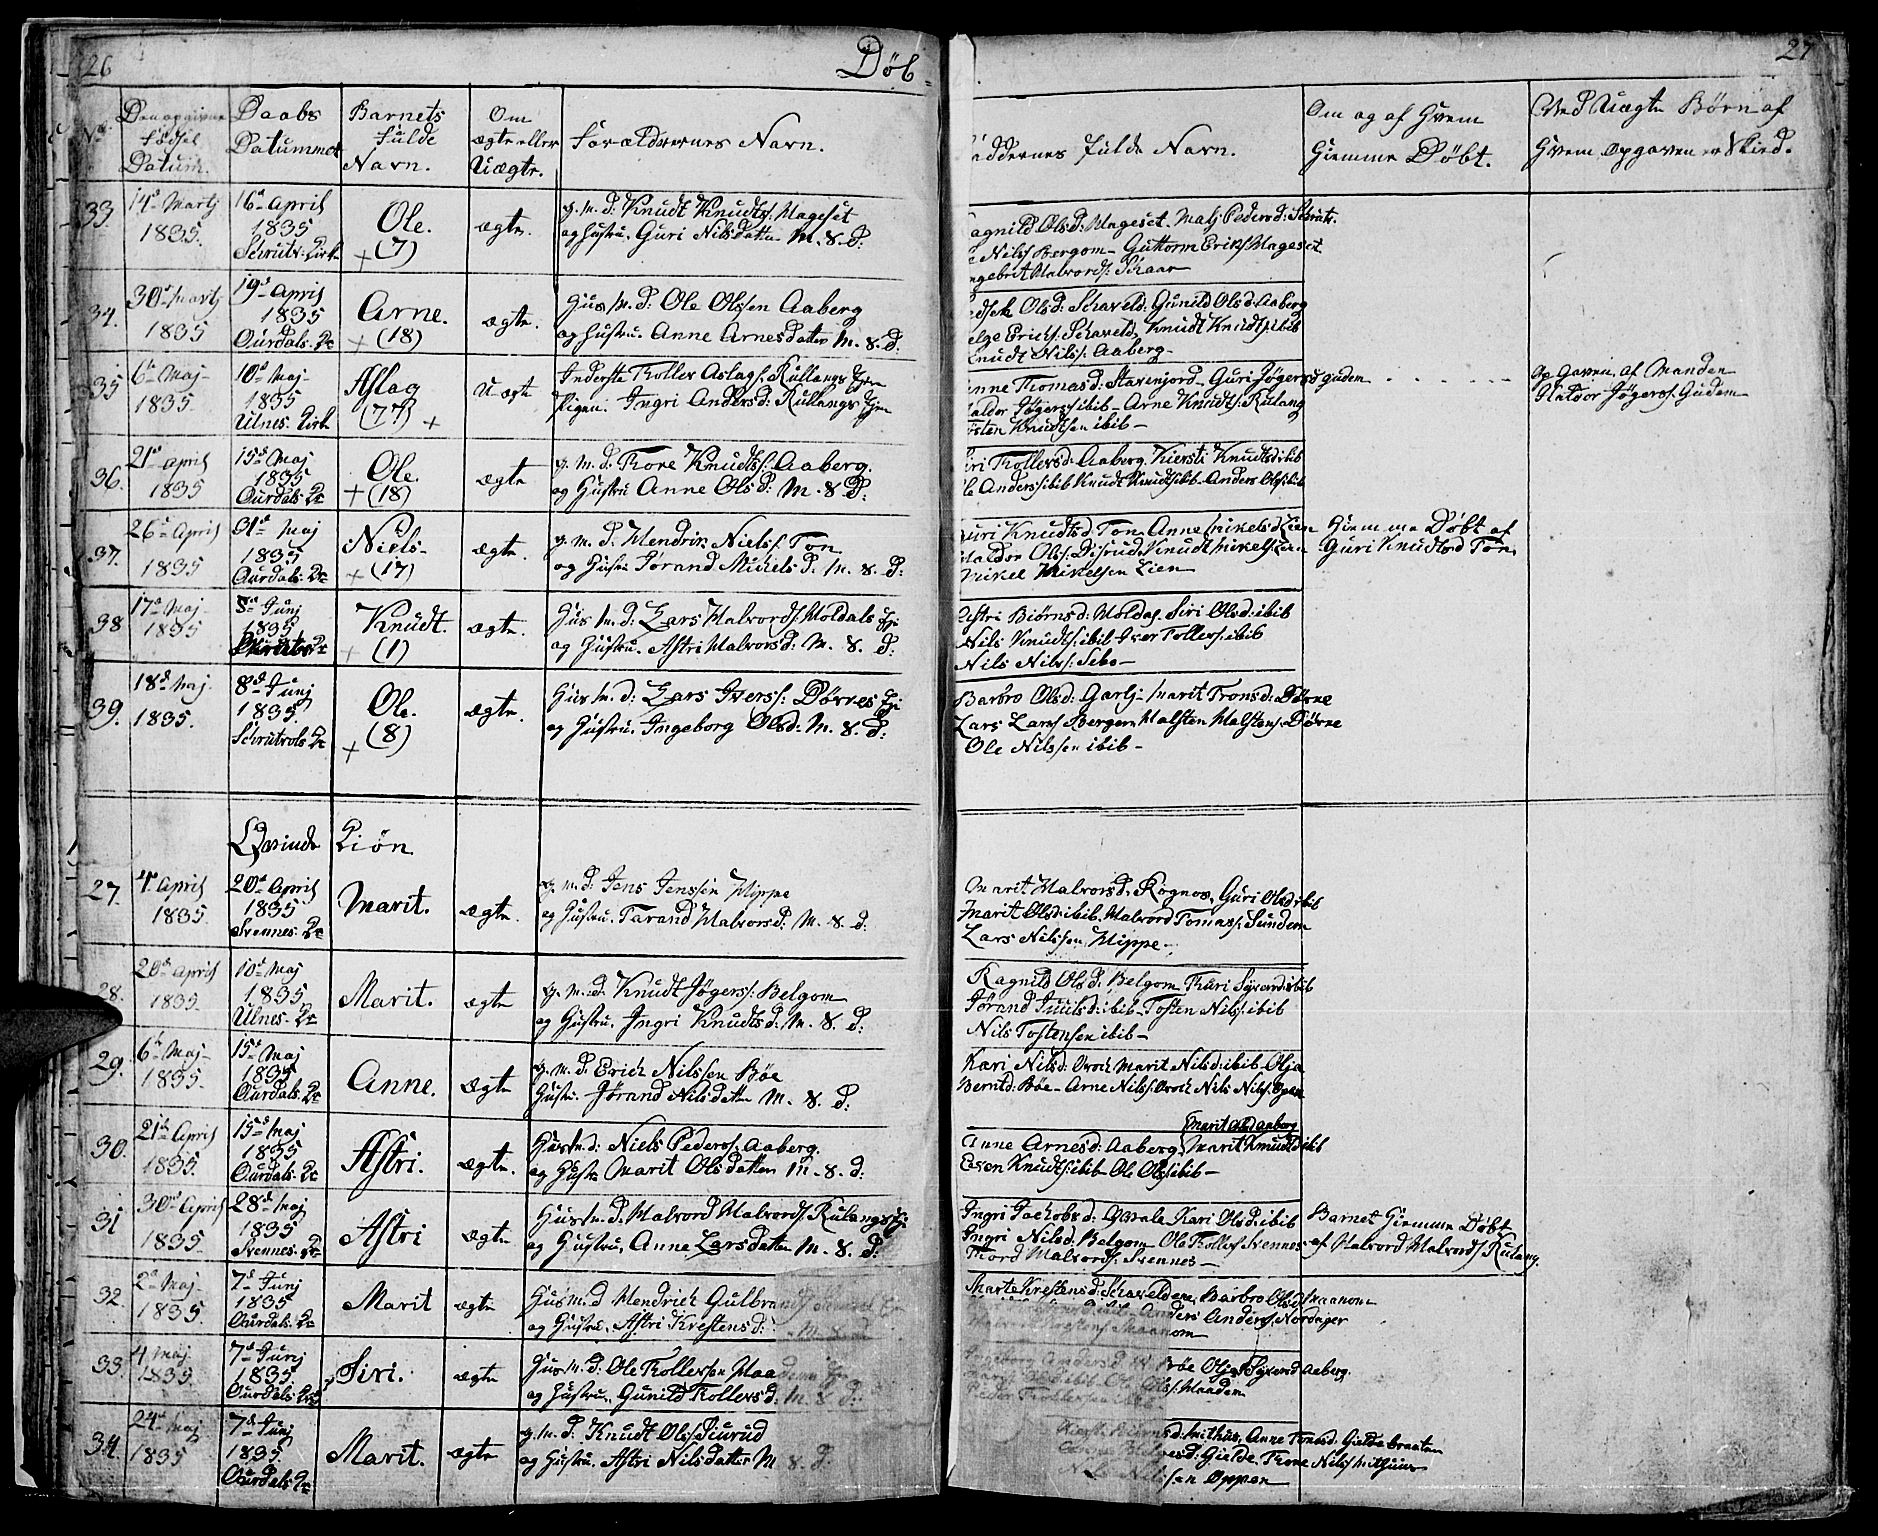 26
Døb-
27
No
Den opgivne Fødsel Datum.
Daabs Datummet
Barnets fulde Navn.
Om ægte eller Uægte.
Forældrernes Navn.
Faddernes fulde Navn.
Om og af Hvem Hiemme Døbt.
Ved Uægte Børn af Hvem Opgaven er Skied.
33. 14de Martj 1835. 16de April 1835 Schrutv: Kirk Ole. +(7) ægte. g. M. d: Knudt Knudts: Mageset
og Hustru. Guri Nilsdatter M. 8. d:
Ragnild Olsd: Mageset. Malj Pedersd: Schrutv.
Nilss Bergom- Guttorm Eriks: Mageset
Ingebrit Halvords: Schaar
34. 30te Martj 1835 19de April 1835 Ourdals. Kr Arne. +(18) ægte. Hus M. d: Ole Olssen Aaberg
og Hustru. Anne Arnesdatter M. 8. d:
Olsd: Schaveld: Gunild Olsd: Aaberg
Helge Erichs: Schaveld, Knudt Knudts: ibib
Knudt Nilss: Aaberg-
35 6te Maj- 1835- 10de Maj- 1835 Ulnes. Kirk Aslag (77) + U-ægte Inderste Thollev Aslags: Rullangs Eje
Pigen: Ingri Andersd: Rullangs Eje
Anne Thomasd: Stavenjord- Guri Jøgersd Gudem
Haldor Jøgerss: ibib- Arne Knudts: Rulang
Tosten Knudtsen ibib-
Opgaven af Manden
Haldor Jøgerss: Gudem
36. 21de April 1835 15de Maj 1835 Ourdals. Kr Ole. +(18) ægte g. M. d: Thore Knudts: Aaberg.
og Hustru Anne Olsd: M. 8. d:
Siri Thollevsd: Aaberg. Kiersti Knudtsd: ibib
Ole Anderss: ibib Knudt Knudts: ibib- Anders Ols: ibib
37. 26de April 1835 31te Maj 1835 Ourdals. Kr Niels- +(17) ægte. g. M. d. Hendrik Nielss: Ton
og Hustru Jørand Mikels d: M. 8. d:
Guri Knudtsd: Ton. Anne Mikelsd Lien
Haldor Ols: Disrud. Knudt Mikels: Lien
Mikel Mikelsen Lien
Hiemme Døbt af
Guri Knudtsd Ton.
38 17de Maj- 1835 8de Junj 1835 Knudt. + (1) ægte. Hus M. d: Lars Halvords: Moldals Eje
og Hustru. Astri Halvorsd: M. 8. d:
Astri Biørnsd: Moldal. Siri Olsd: ibib
Nils Knudts: ibib. Iver Tollevs: ibib
Nils Nilss: Sebo-
39. 18de Maj. 1835. 8de Junj 1835. Schrutvols. Kr Ole. +(8) ægte. Hus M. d: Lars Ivers: Dørnes Eje
og Hustru. Ingeborg Olsd: M. 8. d:
Barbro Olsd: Garlj- Marit Tronsd: Dørne
Lars Larss Bergen. Halsten Halstens: Dørne
Ole Nilssen ibib-
Qvinde Kiøn
27. 4. April 1835. 20de April 1835 Svennes. Kr Marit. ægte. g. M. d: Jens Jenssen Hippe
og Hustru. Tarand Halvorsd: M. 8. d:
Marit Halvorsd. Rognos, Guri Olsd: ibib
Marit Olsd: ibib. Halvord Tomass: Sundem
Lars Nilssen Hippe-
28. 20de April 1835. 10de Maj 1835 Ulnes. Kr Marit. ægte g. M. d: Knudt Jøgerss: Belgom
og Hustru. Ingri Knudtsd: M. 8. d:
Ragnild Olsd: Belgom Thuri Siversd: ibib
Jørand Juulsd: ibib- Tosten Nilss: ibib
Nils Tostensen ibib-
29. 6te Maj- 1835- 15de Maj 1835 Ourdals. Kr Anne. ægte g. M. d: Erich Nilssen Bøe
Hustru. Jørand Nilsdatter M. 8. d:
Kari Nilsd: Moch Marit Nilsd: ibib- Olja
Berntd: Bøe- Arne Nilss: Moch Nils Nilss: Bøen
30. 21de April 1835. 15de Maj 1835 Ourdals. Kr Astri. ægte. Hus M. d: Niels Pederss: Aaberg.
og Hustru Marit Olsdatter M. 8. d:
Marit Olsd Aaberg
Anne Arnesd: Aaberg, Marit Knudtsd ibib
Even Knudts: ibib Ole Ols: ibib-
31 30te April 1835- 28de Maj 1835 Svennes. Kr Astri ægte Hus M. d. Halvord Halvords: Rulangs Eje
og Hustru. Anne Larsdatter M. 8. d:
Ingri Jachobsd: Qvale Kari Olsd: ibib
Ingri Nilsd. Belgom Ole Thollefs Svennes
Thord Halvords: Svennes-
Barnet Hiemme Døbt
af Halvord Halvords Rulang
32. 2de Maj- 1835. 7de Junj 1835 Ourdals. Kr Marit ægte Hus M. d Hendrich Gulbrands
og Hustru. Astri Krestensd: M. 8. d
Marte Krestensd: Schaveldene, Barbro Olsd Maanom
Anders Anderss: Nordager
Maanom
33. 4 Maj 1835. 7de Junj 1835. Ourdals. Kr Siri. ægte Hus M. d: Ole Thollevsen Maadem
og Hustru. Gunild Thollevsd: M. 8. d:
Bøe Olja Siversd Aaberg.
Maadem
34. 24de Maj 1835 7de Junj 1835. Ourdals. Kr Marit. ægte g. M. d: Knudt Ols: Disrud
og Hustru. Astri Nilsdatter M 8. d.
Mithus. Anne Tronsd: Gieldebraaten
Gielde. Thrond Nilss Mithuus
Oppen